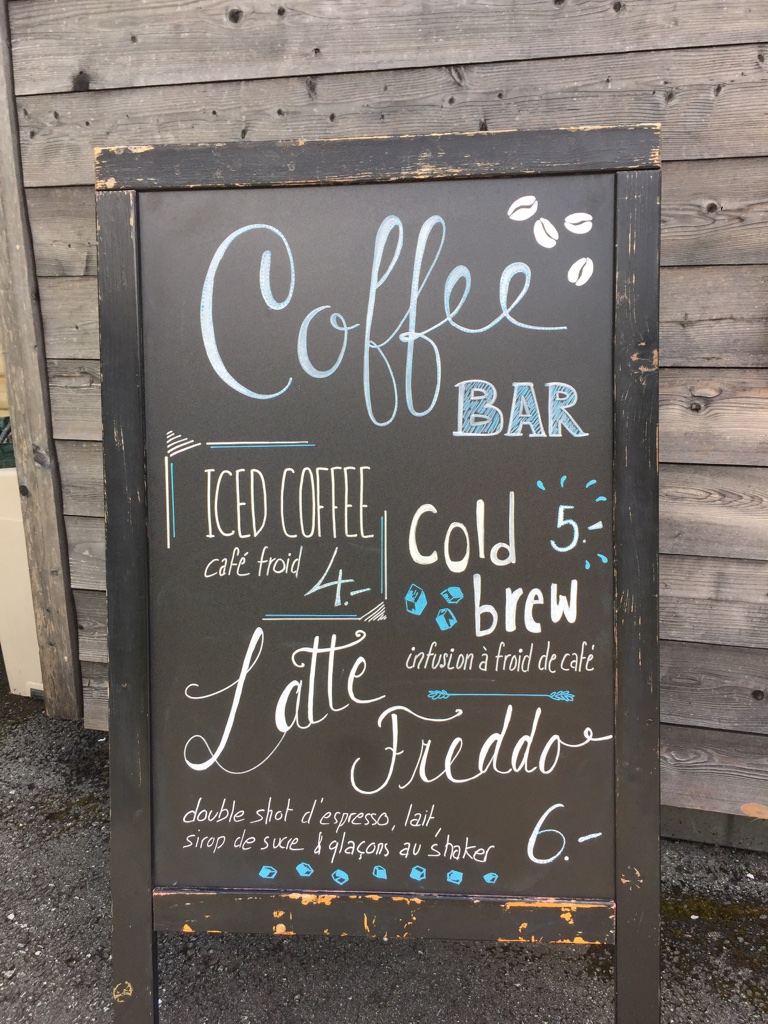 Coffee
BAR
ICED COFFEE
café froid
4.-
Cold 5.-
brew
infusion à froid de café
Latte
Freddo
double shot d'espresso, lait,
sirop de sucre & glaçons au shaker
6.-